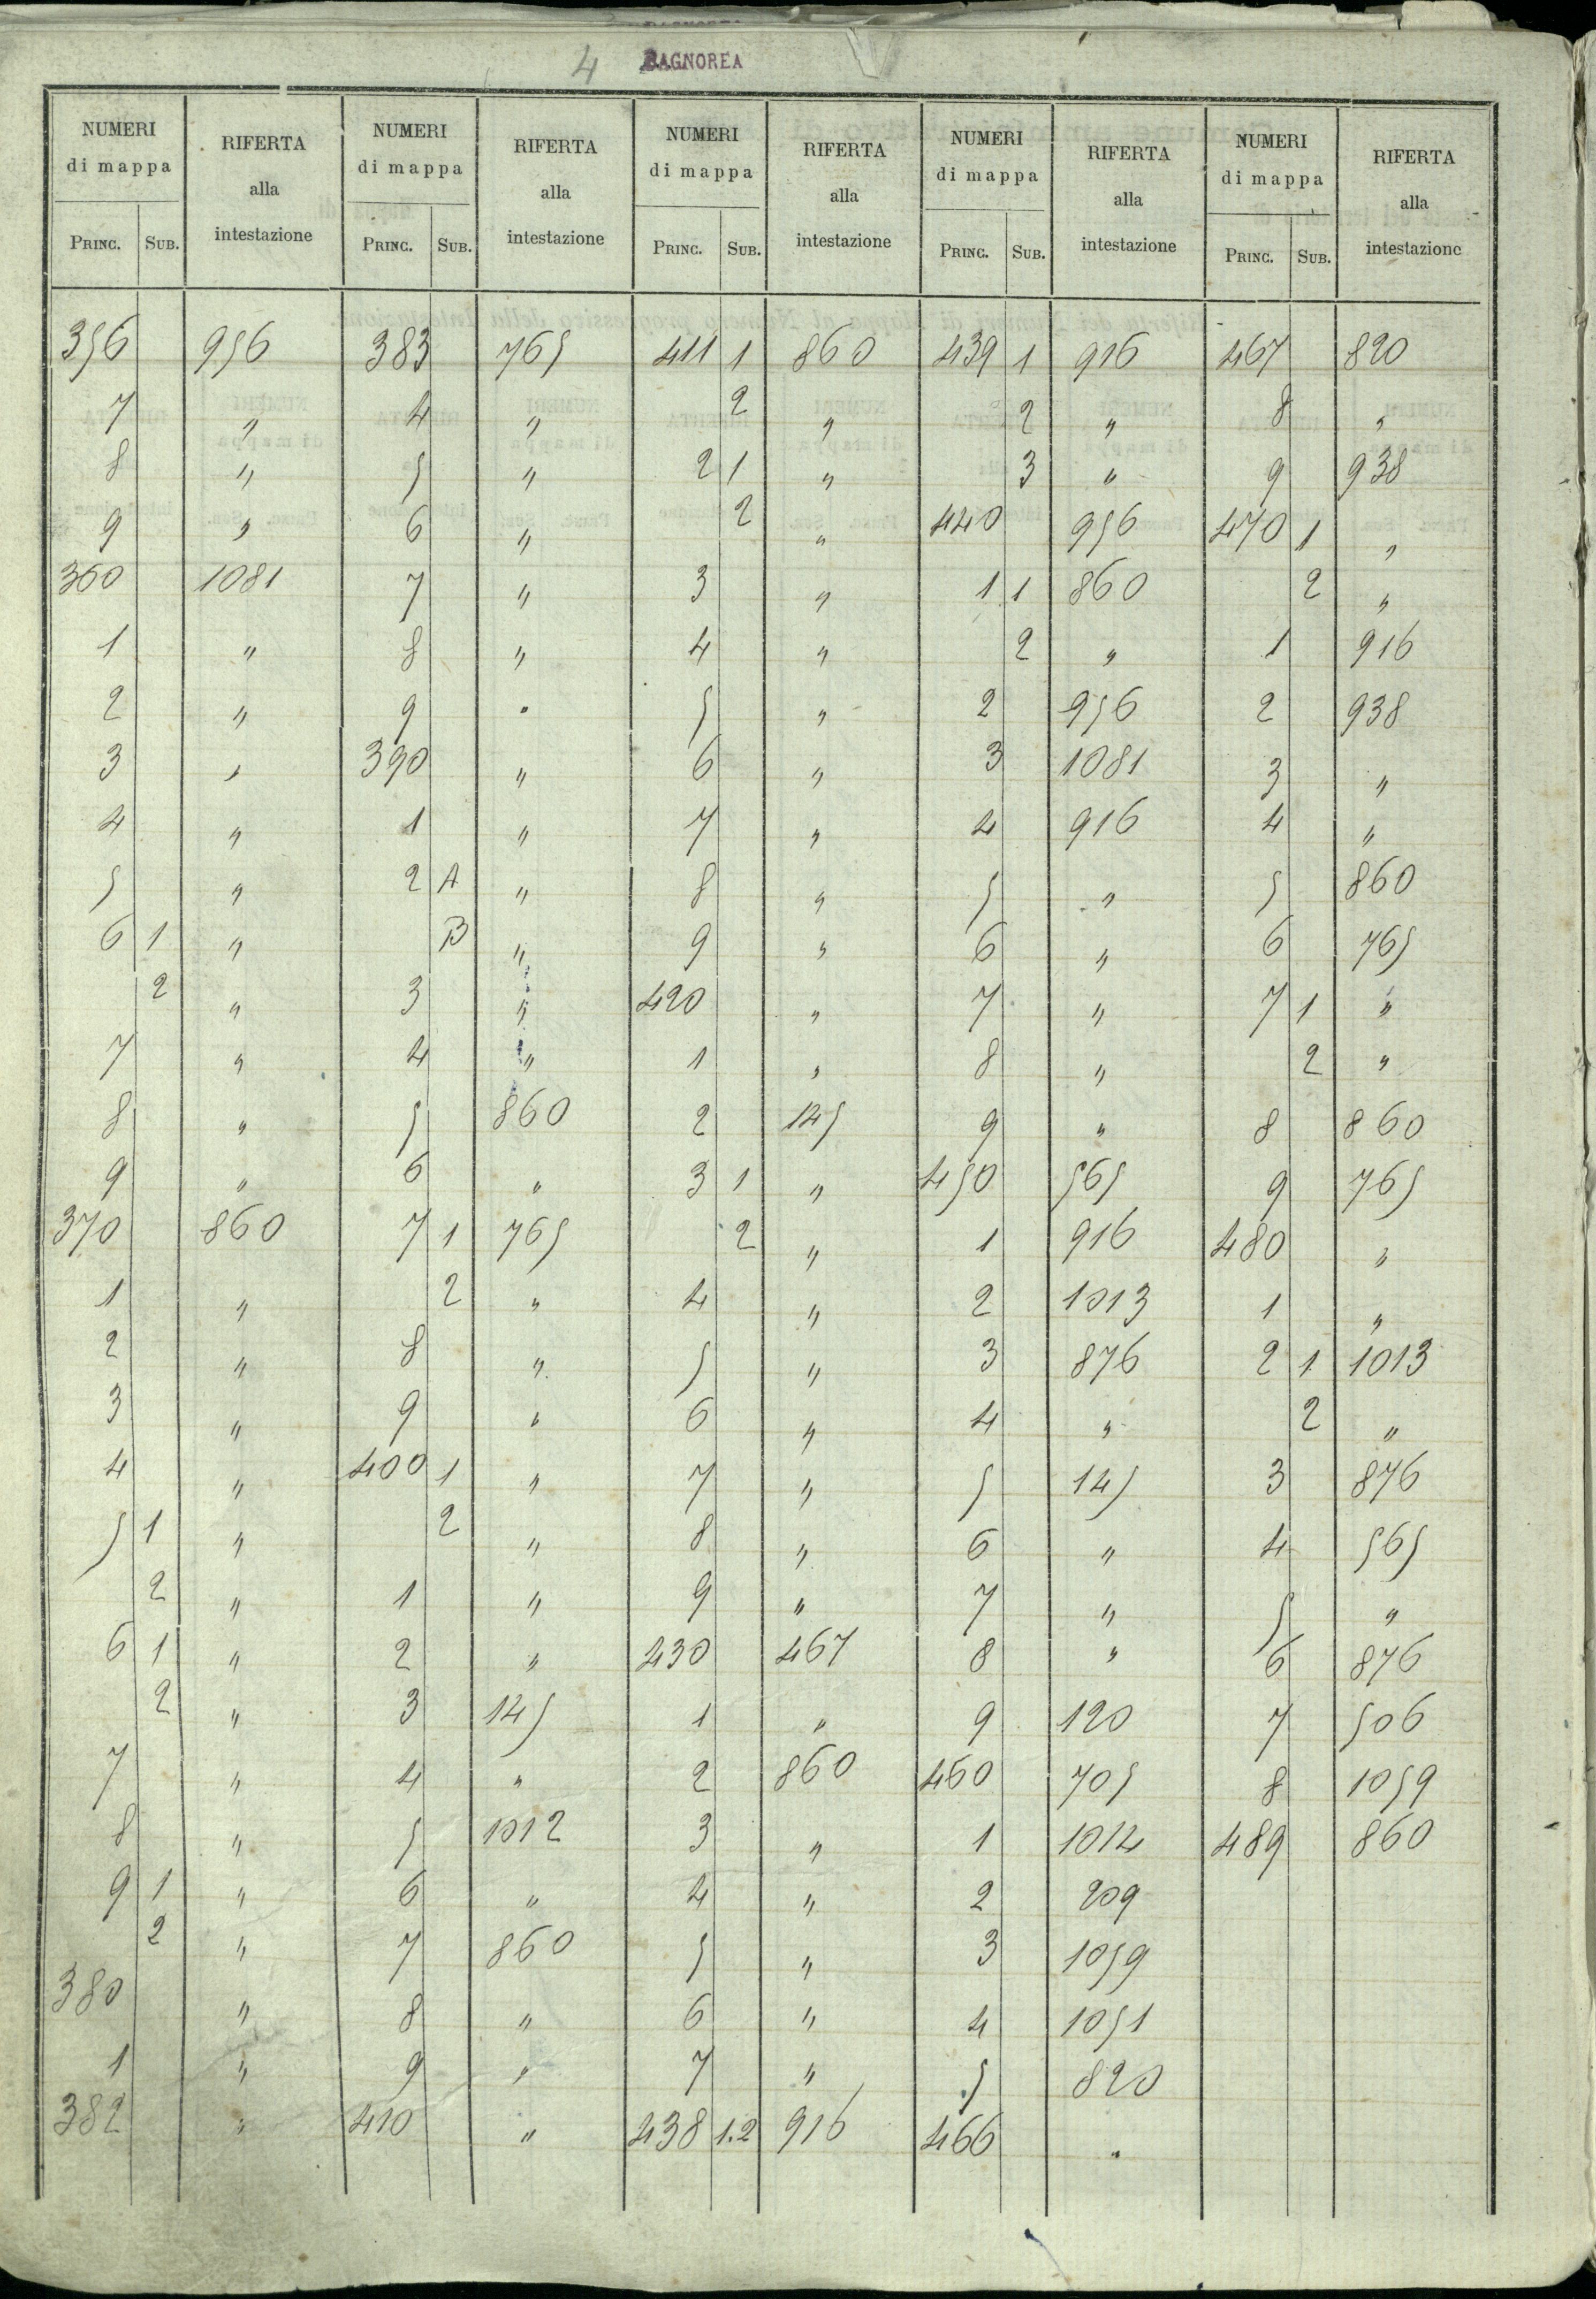 4 BAGNOREA
NUMERI di mappa RIFERTA alla intestazione NUMERI di mappa RIFERTA alla intestazione NUMERI di mappa RIFERTA alla intestazione NUMERI di mappa RIFERTA alla intestazione NUMERI di mappa RIFERTA alla intestazione
PRINC. SUB. PRINC. SUB. PRINC. SUB. PRINC. SUB. PRINC. SUB.
356 956 383 765 411 1 860 439 1 916 467 820
7 " 4 " 2 " 2 " 8 "
8 " 5 " 2 1 " 3 " 9 938
9 " 6 " 2 " 440 956 470 1 "
360 1081 7 " 3 " 1 1 860 2 "
1 " 8 " 4 " 2 " 1 916
2 " 9 " 5 " 2 956 2 938
3 " 390 " 6 " 3 1081 3 "
4 " 1 " 7 " 4 916 4 "
5 " 2 A " 8 " 5 " 5 860
6 1 " B " 9 " 6 " 6 765
2 " 3 " 420 " 7 " 7 1 "
7 " 4 " 1 " 8 " 2 "
8 " 5 860 2 145 9 " 8 860
9 " 6 " 3 1 " 450 565 9 765
370 860 7 1 765 2 " 1 916 480 "
1 " 2 " 4 " 2 1013 1 "
2 " 8 " 5 " 3 876 2 1 1013
3 " 9 " 6 " 4 " 2 "
4 " 400 1 " 7 " 5 145 3 876
5 1 " 2 " 8 " 6 " 4 565
2 " 1 " 9 " 7 " 5 "
6 1 " 2 " 430 467 8 " 6 876
2 " 3 145 1 " 9 120 7 506
7 " 4 " 2 860 460 705 8 1059
8 " 5 1012 3 " 1 1014 489 860
9 1 " 6 " 4 " 2 209
2 " 7 860 5 " 3 1059
380 " 8 " 6 " 4 1051
1 " 9 " 7 " 5 820
382 " 410 " 438 1.2 916 466 "